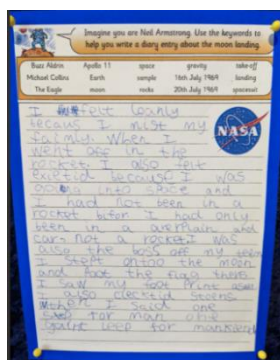 Imagine you are Neil Armstrong. Use the keywords to
help you write a diary entry about the moon landing.
Buzz Aldrin Apollo 11 space gravity take-off
Michael Collins Earth sample 16th July 1969 landing
The Eagle moon rocks 20th July 1969 spacesuit
NASA
I felt loanly
becaus I mist my
familly. When I
went off in the
rocket. I also felt
exietid because I was
going into space and
I had not been in a
rocket bifor I had only
been in a and
car not a rocket I was
also the boss off my team
I stept onto the moon
and poot the flag there
I saw my foot print
I also
I said one
step for man one
leep for mankind